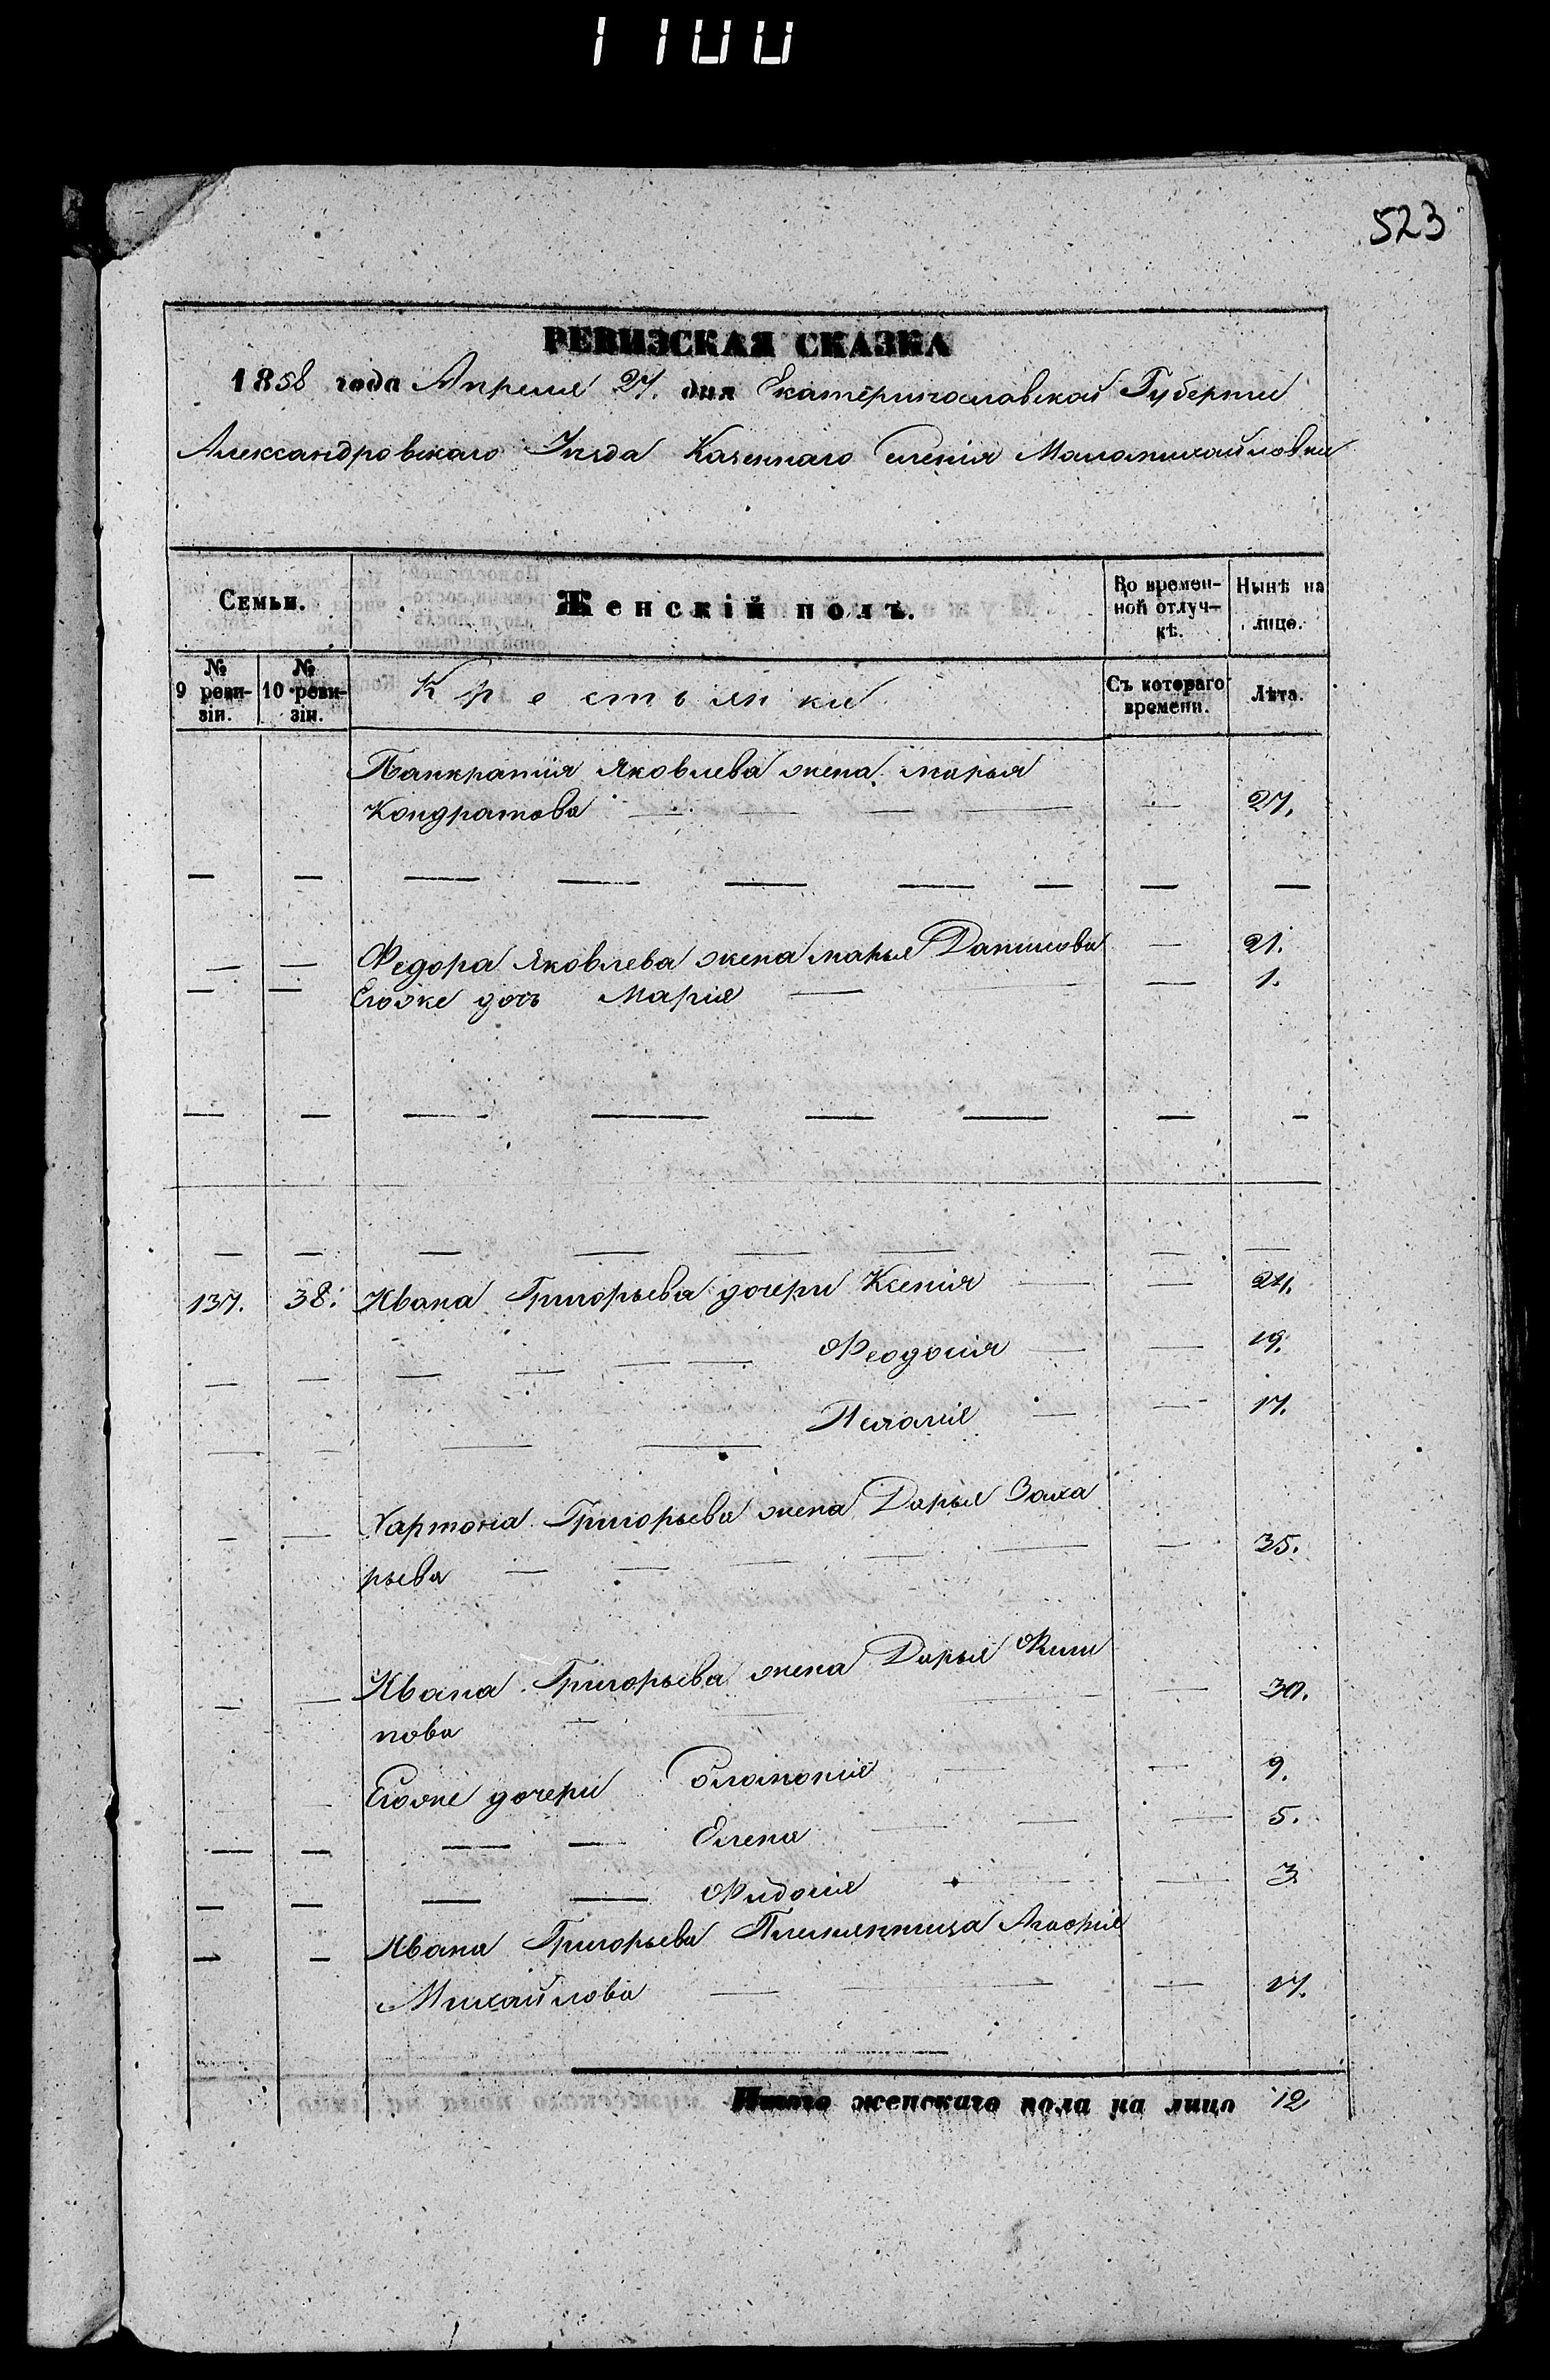 1100
523
РЕВИЗСКАЯ СКАЗКА
1858 года Апреля 27. дня Екатеринославской Губернии
Александровскаго Уезда Казеннаго Селенія Маломихайловки
Семьи. Женскій полъ. Во времен- Нынѣ на
ной отлуч- лицо.
кѣ.
№ № Крестьянки Съ котораго Лѣта.
9 реви- 10 реви- времени.
зіи. зіи.
Панкратия Яковлева жена марья
Кондратова — — — — — 27.
— — — — — — — — —
— — Федора Яковлева жена марья Данилова — 21.
— — Егоже дочь Мария — — — 1.
— — — — — — — —
— — — — — — — —
137. 38. Ивана Григорьева дочери Ксения — — 24.
— — — — — — Феодосия — — 19.
— — — — Пелагия — — 17.
— — Харитона Григорьева жена Дарья Заха
рьева — — — — — — 35.
— — Ивана Григорьева жена Дарья Фили
пова — — — — 30.
Егоже дочери Соломония — — 9.
— — — — Елена — — — 5.
— — — — Фидосия — — 3.
— — Ивана Григорьева Племянница Агафия
Михайлова — — — 17.
Итого женскаго пола на лицо 12